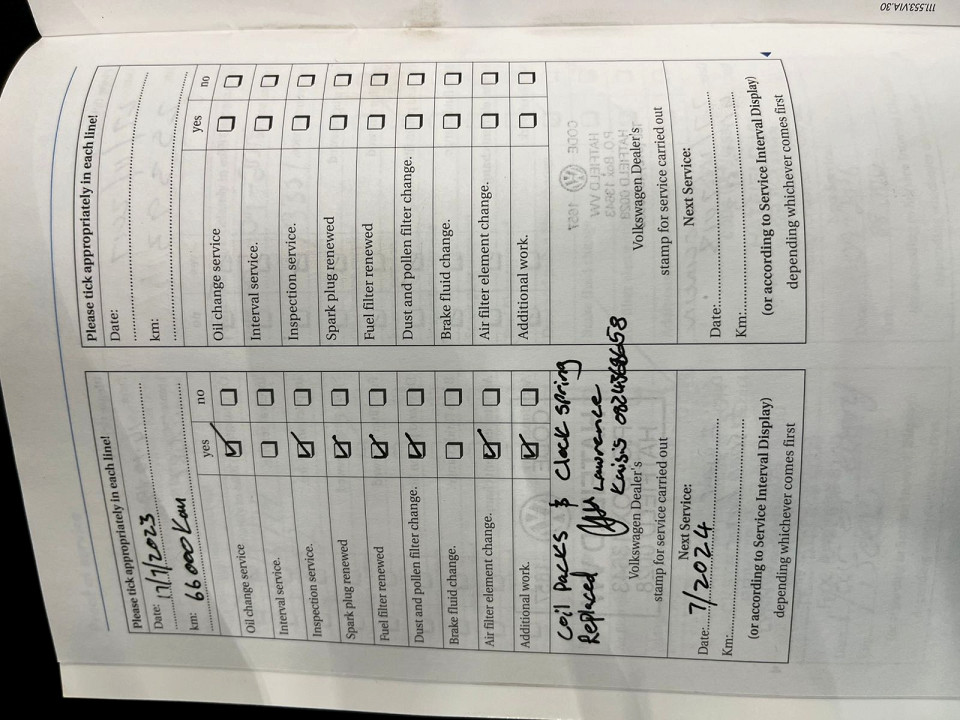 Please tick appropriately in each line!
Date: 17/7/2023
km: 66000 Km
yes no
Oil change service
Interval service.
Inspection service.
Spark plug renewed
Fuel filter renewed
Dust and pollen filter change.
Brake fluid change.
Air filter element change.
Additional work.
Coil Packs & Clock spring
Replaced Lawrence
Krisis
Volkswagen Dealer's
stamp for service carried out
Next Service:
Date: 7/2024
Km:
(or according to Service Interval Display)
depending whichever comes first
Please tick appropriately in each line!
Date:
km:
yes no
Oil change service
Interval service.
Inspection service.
Spark plug renewed
Fuel filter renewed
Dust and pollen filter change.
Brake fluid change.
Air filter element change.
Additional work.
Volkswagen Dealer's
stamp for service carried out
Next Service:
Date:
Km:
(or according to Service Interval Display)
depending whichever comes first
111.553.VIA.30